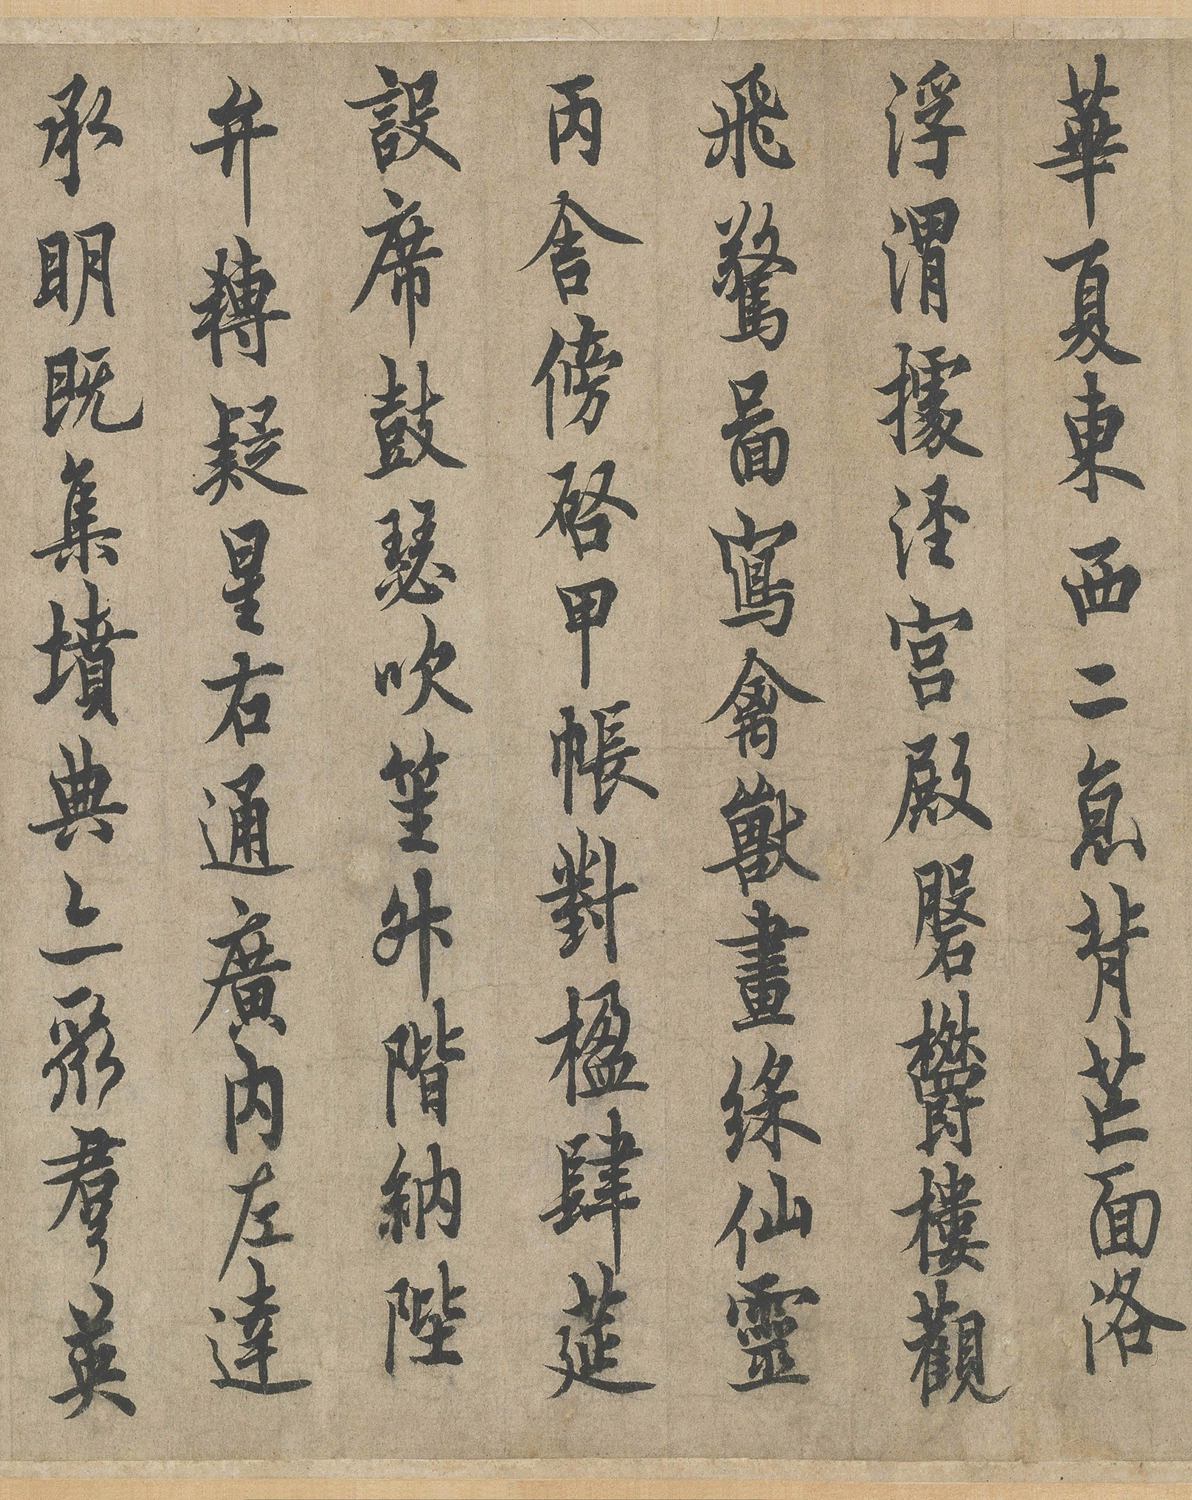 華夏東西二京背芒面洛
浮渭據涇宮殿磐欝樓觀
飛驚圖寫禽獸畫綵仙靈
丙舍傍啓甲帳對楹肆莚
設席鼓瑟吹笙升階納陛
弁轉疑星右通廣內左達
承明既集墳典亦聚群英